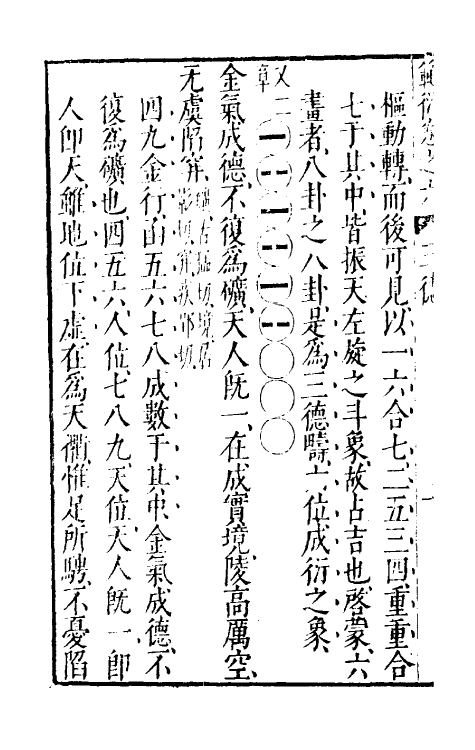 樞動轉而後可見以一六合七二五三四重重合
七于其中皆振天左旋之斗象故占吉也啓蒙六
畫者八卦之八卦是爲三德疇六位成衍之象
又二
章
金氣成德不復爲礦天人既一在成實境陵高厲空
无虞陷穽
四九金行函五六七八成數于其中金氣成德不
復爲礦也四五六人位七八九天位天人既一卽
人卽天雖地位下虛在爲天衢惟足所騁不憂陷